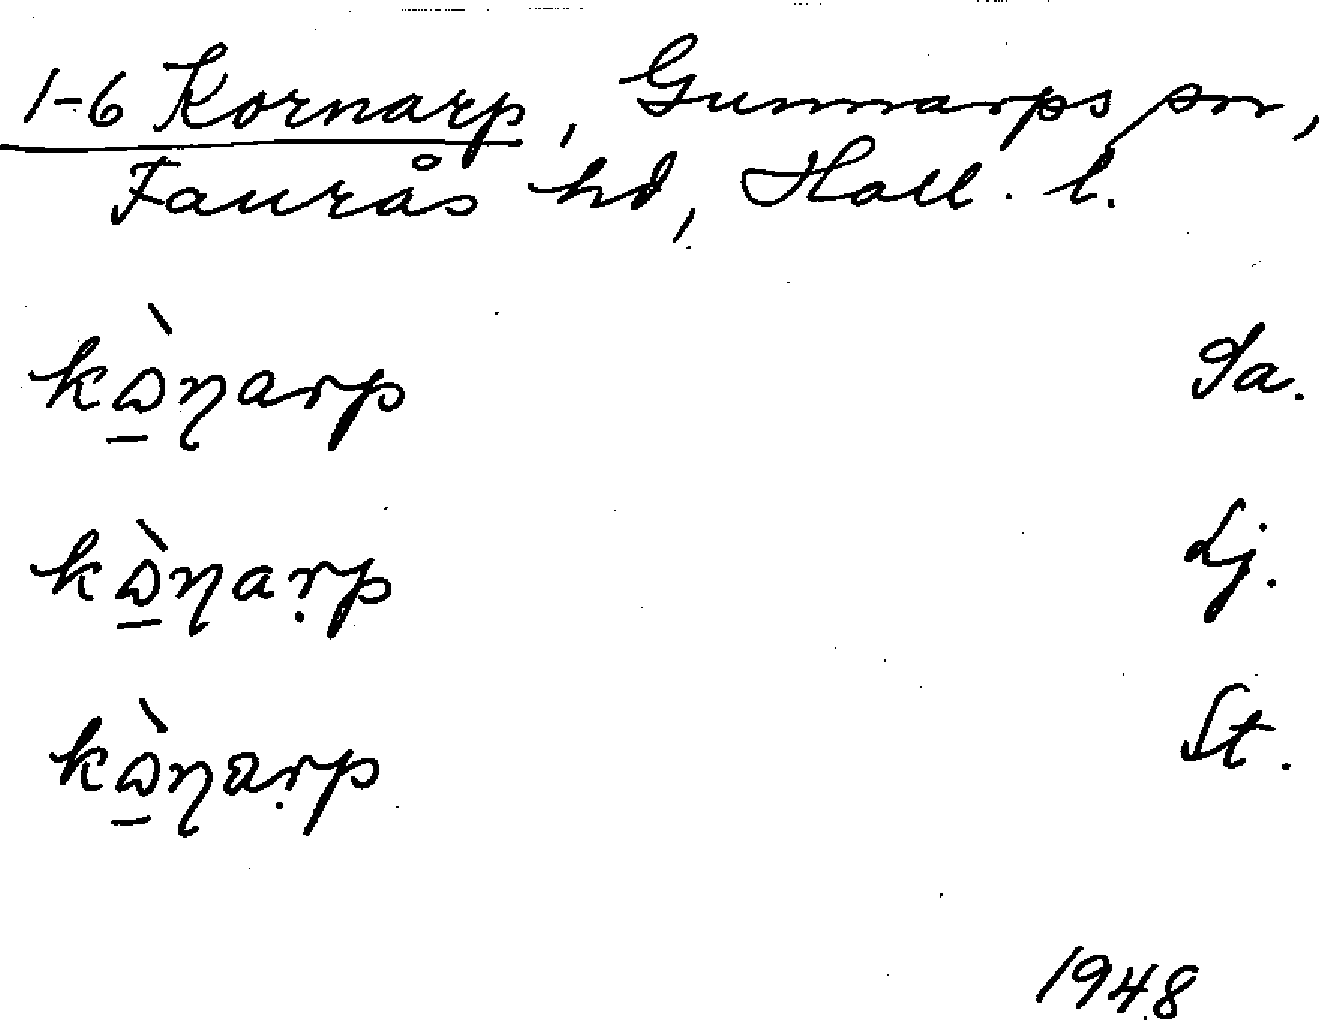 1-6 Kornarp, Gunnarps sn,
Faurås hd, Hall. l.
kɔ̠̀ɳarp Ja.
kɔ̠̀ɳaṛp Lj.
kɔ̠̀ɳaṛp St.
1948